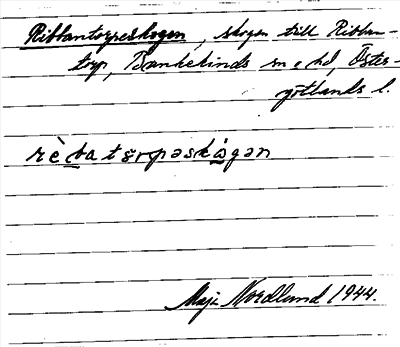 Ribbantorpeskogen, skogen till Ribban-
torp, Bankekinds sn o hd, Öster-
götlands l.
rèbatørpəskógən
Maj Nordlund 1944.